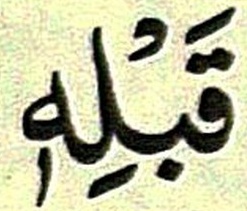 قَبْلِهٖ